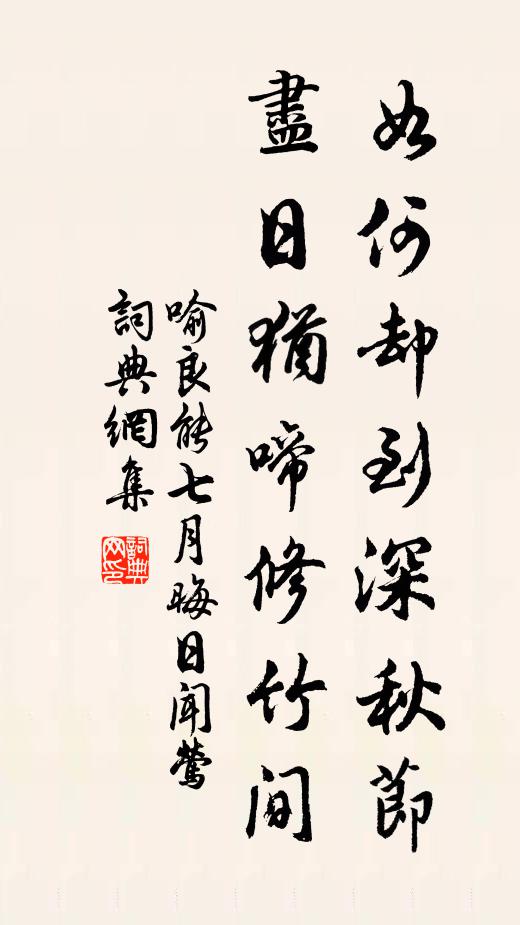 如何却到深秋節
盡日猶啼修竹間
喻良能七月晦日聞鶯
詞典網集
詞典網印